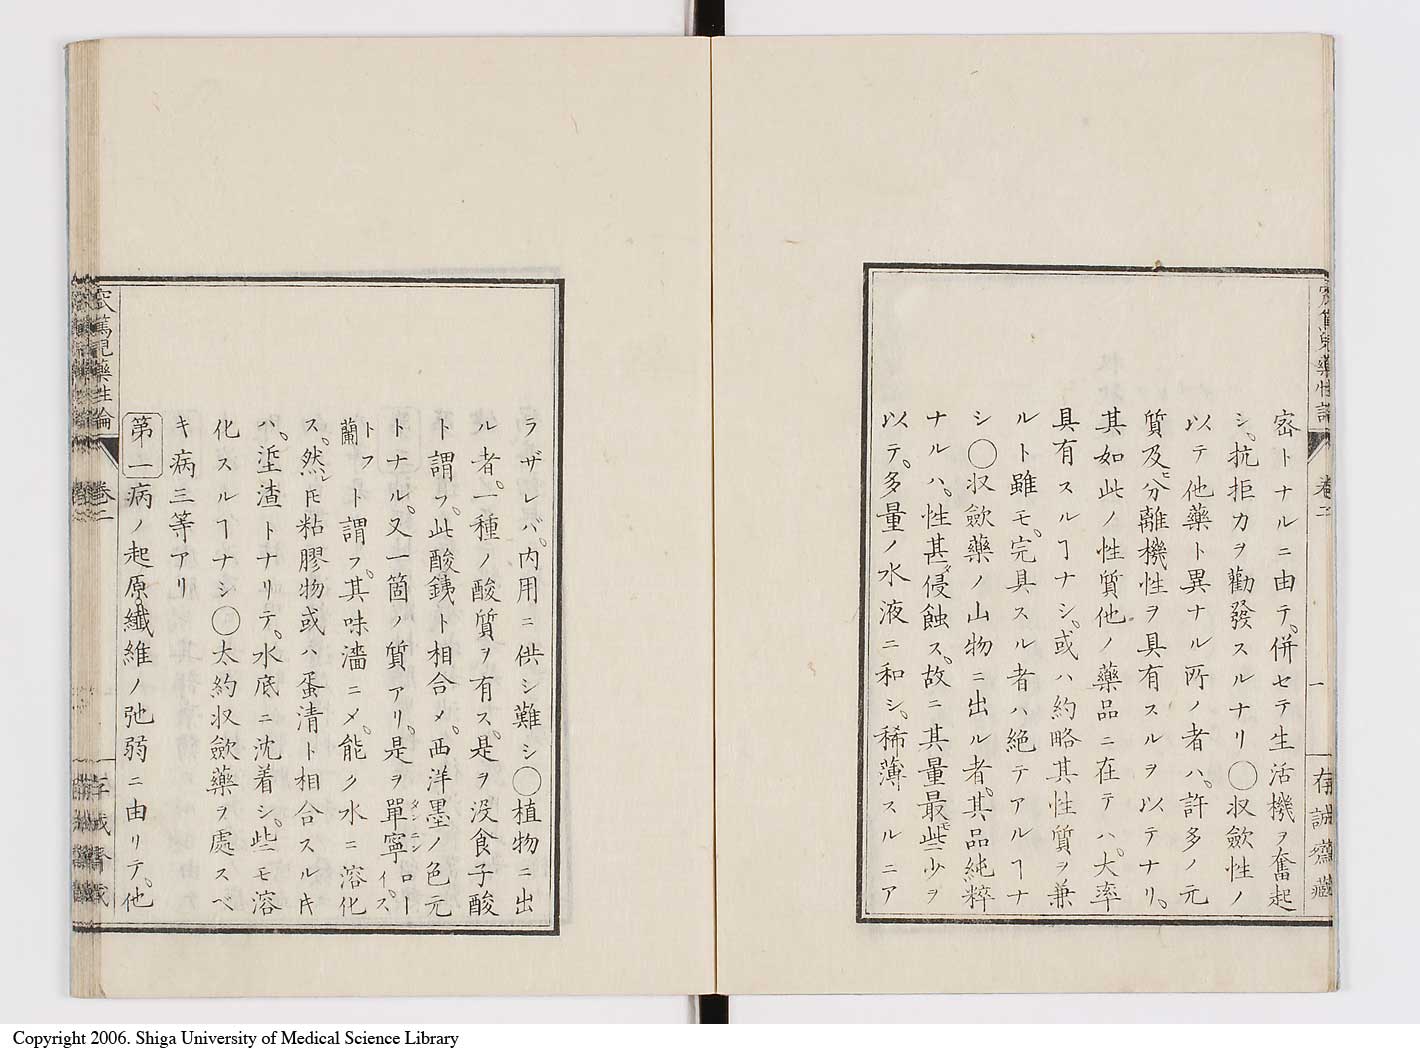 窊篤児藥性論 卷二 一 存誠齋藏
密トナルニ由テ、併セテ生活機ヲ奮起
シ、抗拒力ヲ勸發スルナリ〇収斂性ノ
以テ他藥ト異ナル所ノ者ハ、許多ノ元
質及ヒ分離機性ヲ具有スルヲ以テナリ。
其如此ノ性質他ノ藥品ニ在テハ、大率
具有スルヿナシ、或ハ約略其性質ヲ兼
ルト雖モ、完具スル者ハ絶テアルヿナ
シ〇収斂藥ノ山物ニ出ル者、其品純粹
ナルハ、性甚ダ侵蝕ス、故ニ其量最モ些少ヲ
以テ、多量ノ水液ニ和シ、稀薄スルニア
ラザレバ、内用ニ供シ難シ〇植物ニ出
ル者、一種ノ酸質ヲ有ス、是ヲ没食子酸
ト謂フ、此酸銕ト相合メ、西洋墨ノ色元
トナル、又一箇ノ質アリ、是ヲ單寧タンニンローイ、ス
トフ蘭ト謂フ、其味濇ニメ、能ク水ニ溶化
ス、然レ𪜈粘膠物或ハ蛋清ト相合スルキ
ハ、垽渣トナリテ、水底ニ沈着シ、些モ溶
化スルヿナシ〇太約収斂藥ヲ處スベ
キ病三等アリ
第一病ノ起原纎維ノ弛弱ニ由リテ、他
窊篤児藥性論 卷二
Copyright 2006. Shiga University of Medical Science Library